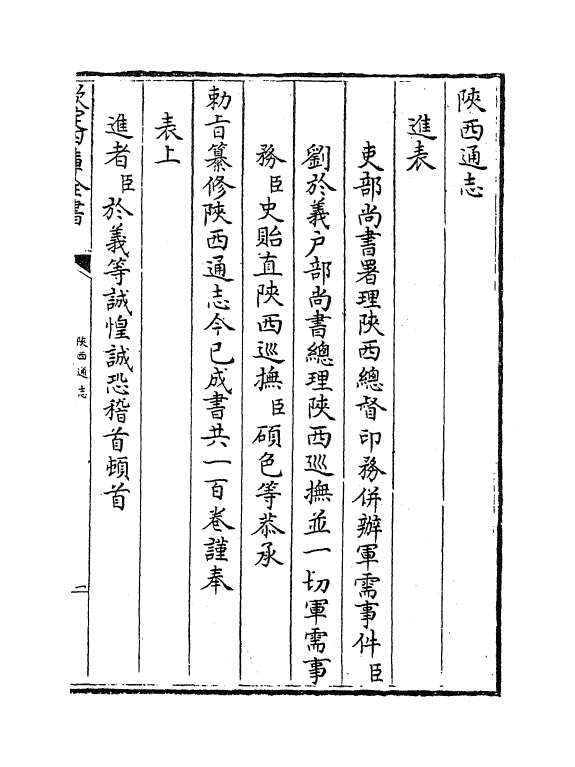 陝西通志
進表
吏部尚書署理陝西總督印務併辦軍需事件臣
劉於義戶部尚書總理陝西巡撫並一切軍需事
務臣史貽直陝西巡撫臣碩色等恭承
勅旨纂修陝西通志今已成書共一百卷謹奉
表上
進者臣於義等誠惶誠恐稽首頓首
欽定四庫全書
陝西通志
二